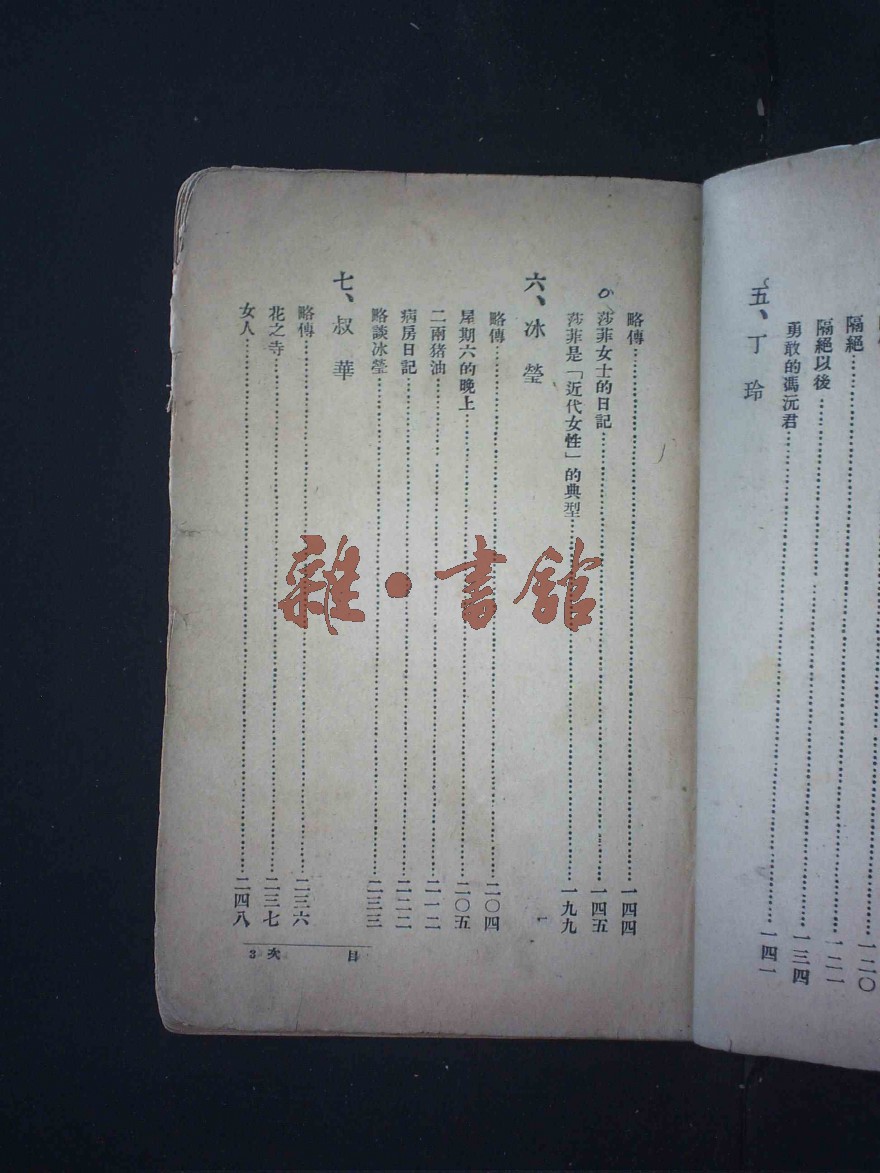 一二〇
隔絕……一二一
隔絕以後……一三四
勇敢的馮沅君……一四一
五、丁玲
略傳……一四四
莎菲女士的日記……一四五
莎菲是「近代女性」的典型……一九九
六、冰瑩
略傳……二〇四
星期六的晚上……二〇五
二兩猪油……二一二
病房日記……二二二
略談冰瑩……二三三
七、叔華
略傳……二三六
花之寺……二三七
女人……二四八
目次 3
雜·書館